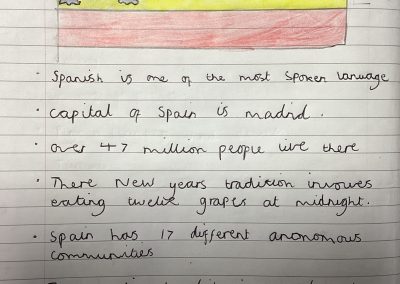 • Spanish is one of the most spoken lanuage
• capital of Spain is madrid.
• over 47 million people live there
• There New years tradition invowes
eating twelve grapes at midnight.
• Spain has 17 different anonomous
communities